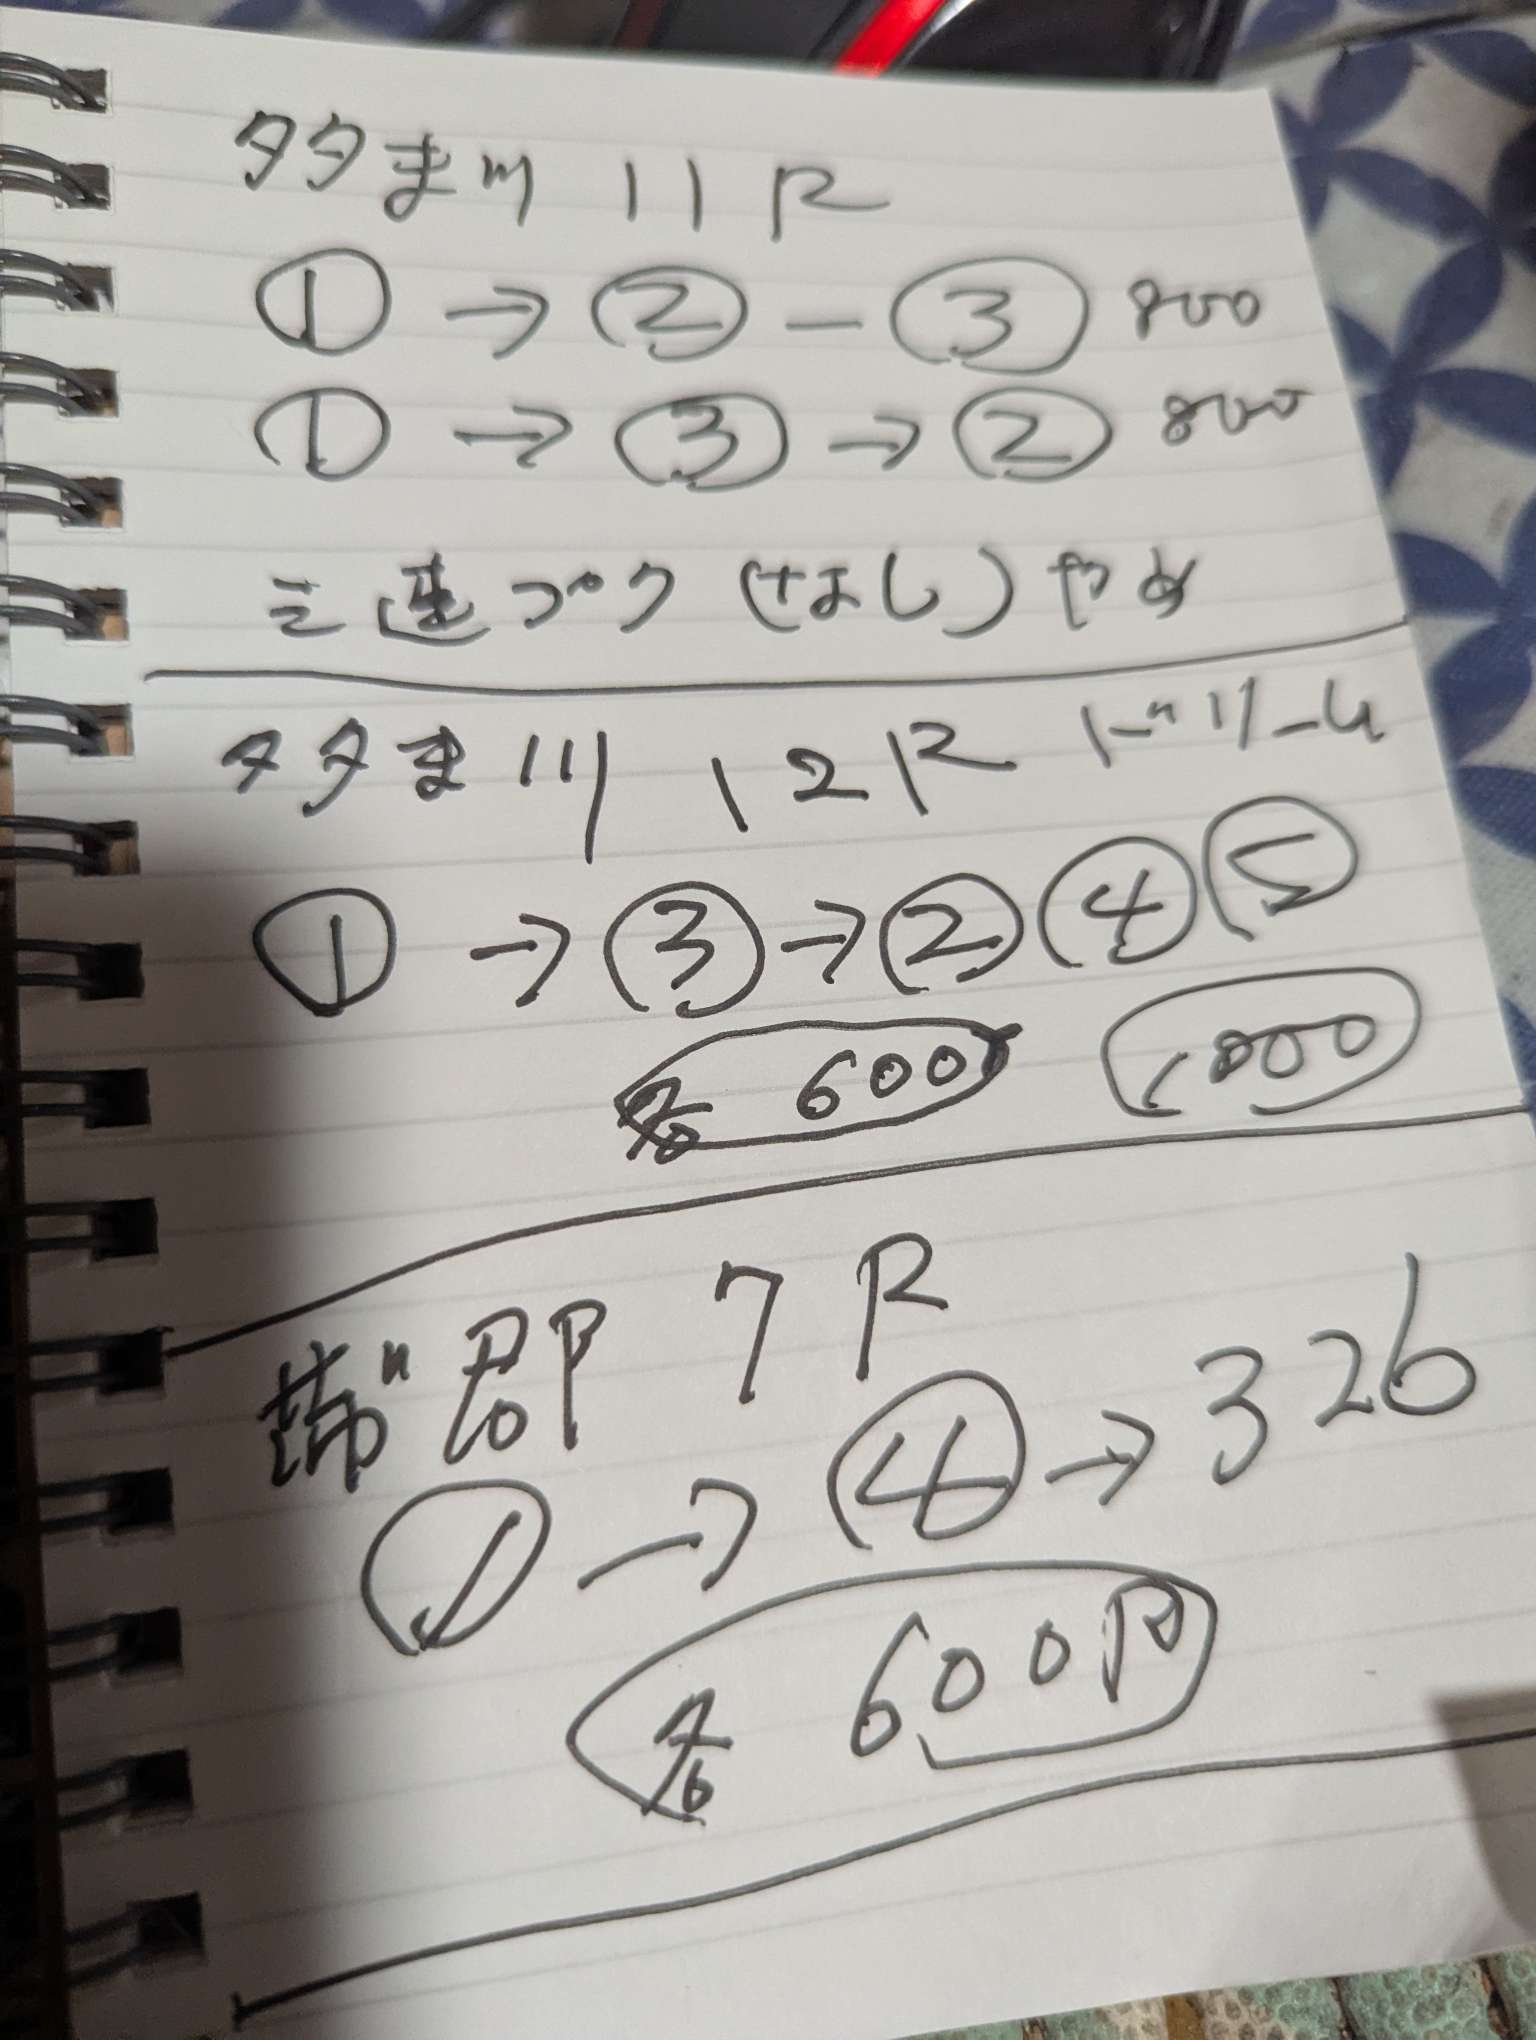 多ま川 11R
① → ② − ③ 800
① → ③ → ② 800
三連プク (なし) やめ
多ま川 12R ドリーム
① → ③ → ② ④ ⑤
各 600 1800
郡 7R
① → ④ → 326
各 600円